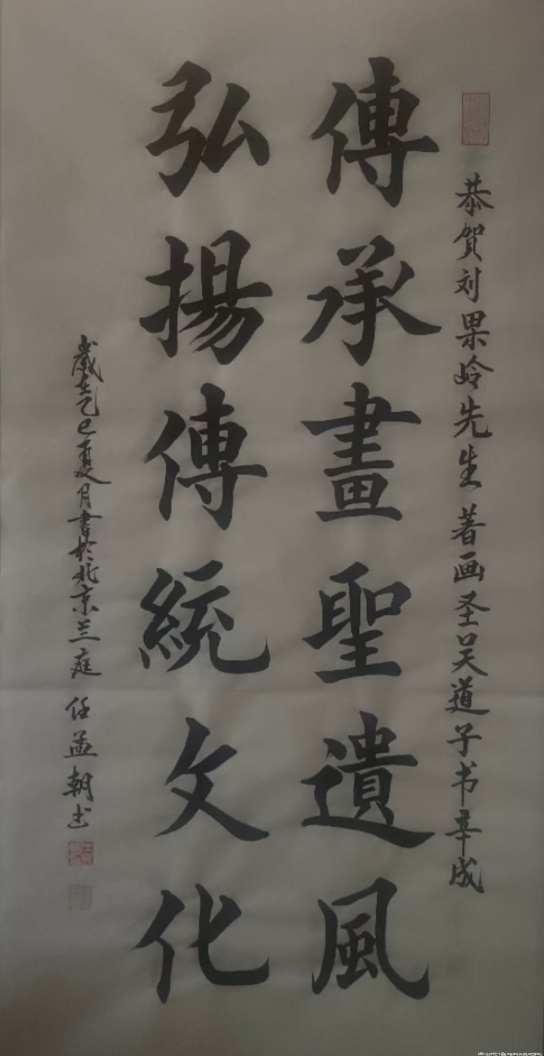 恭贺刘果岭先生著画圣吴道子书幸成
傳承畫聖遺風
弘揚傳統文化
歲乞巳夏月書於北京三庭 任孟朝书